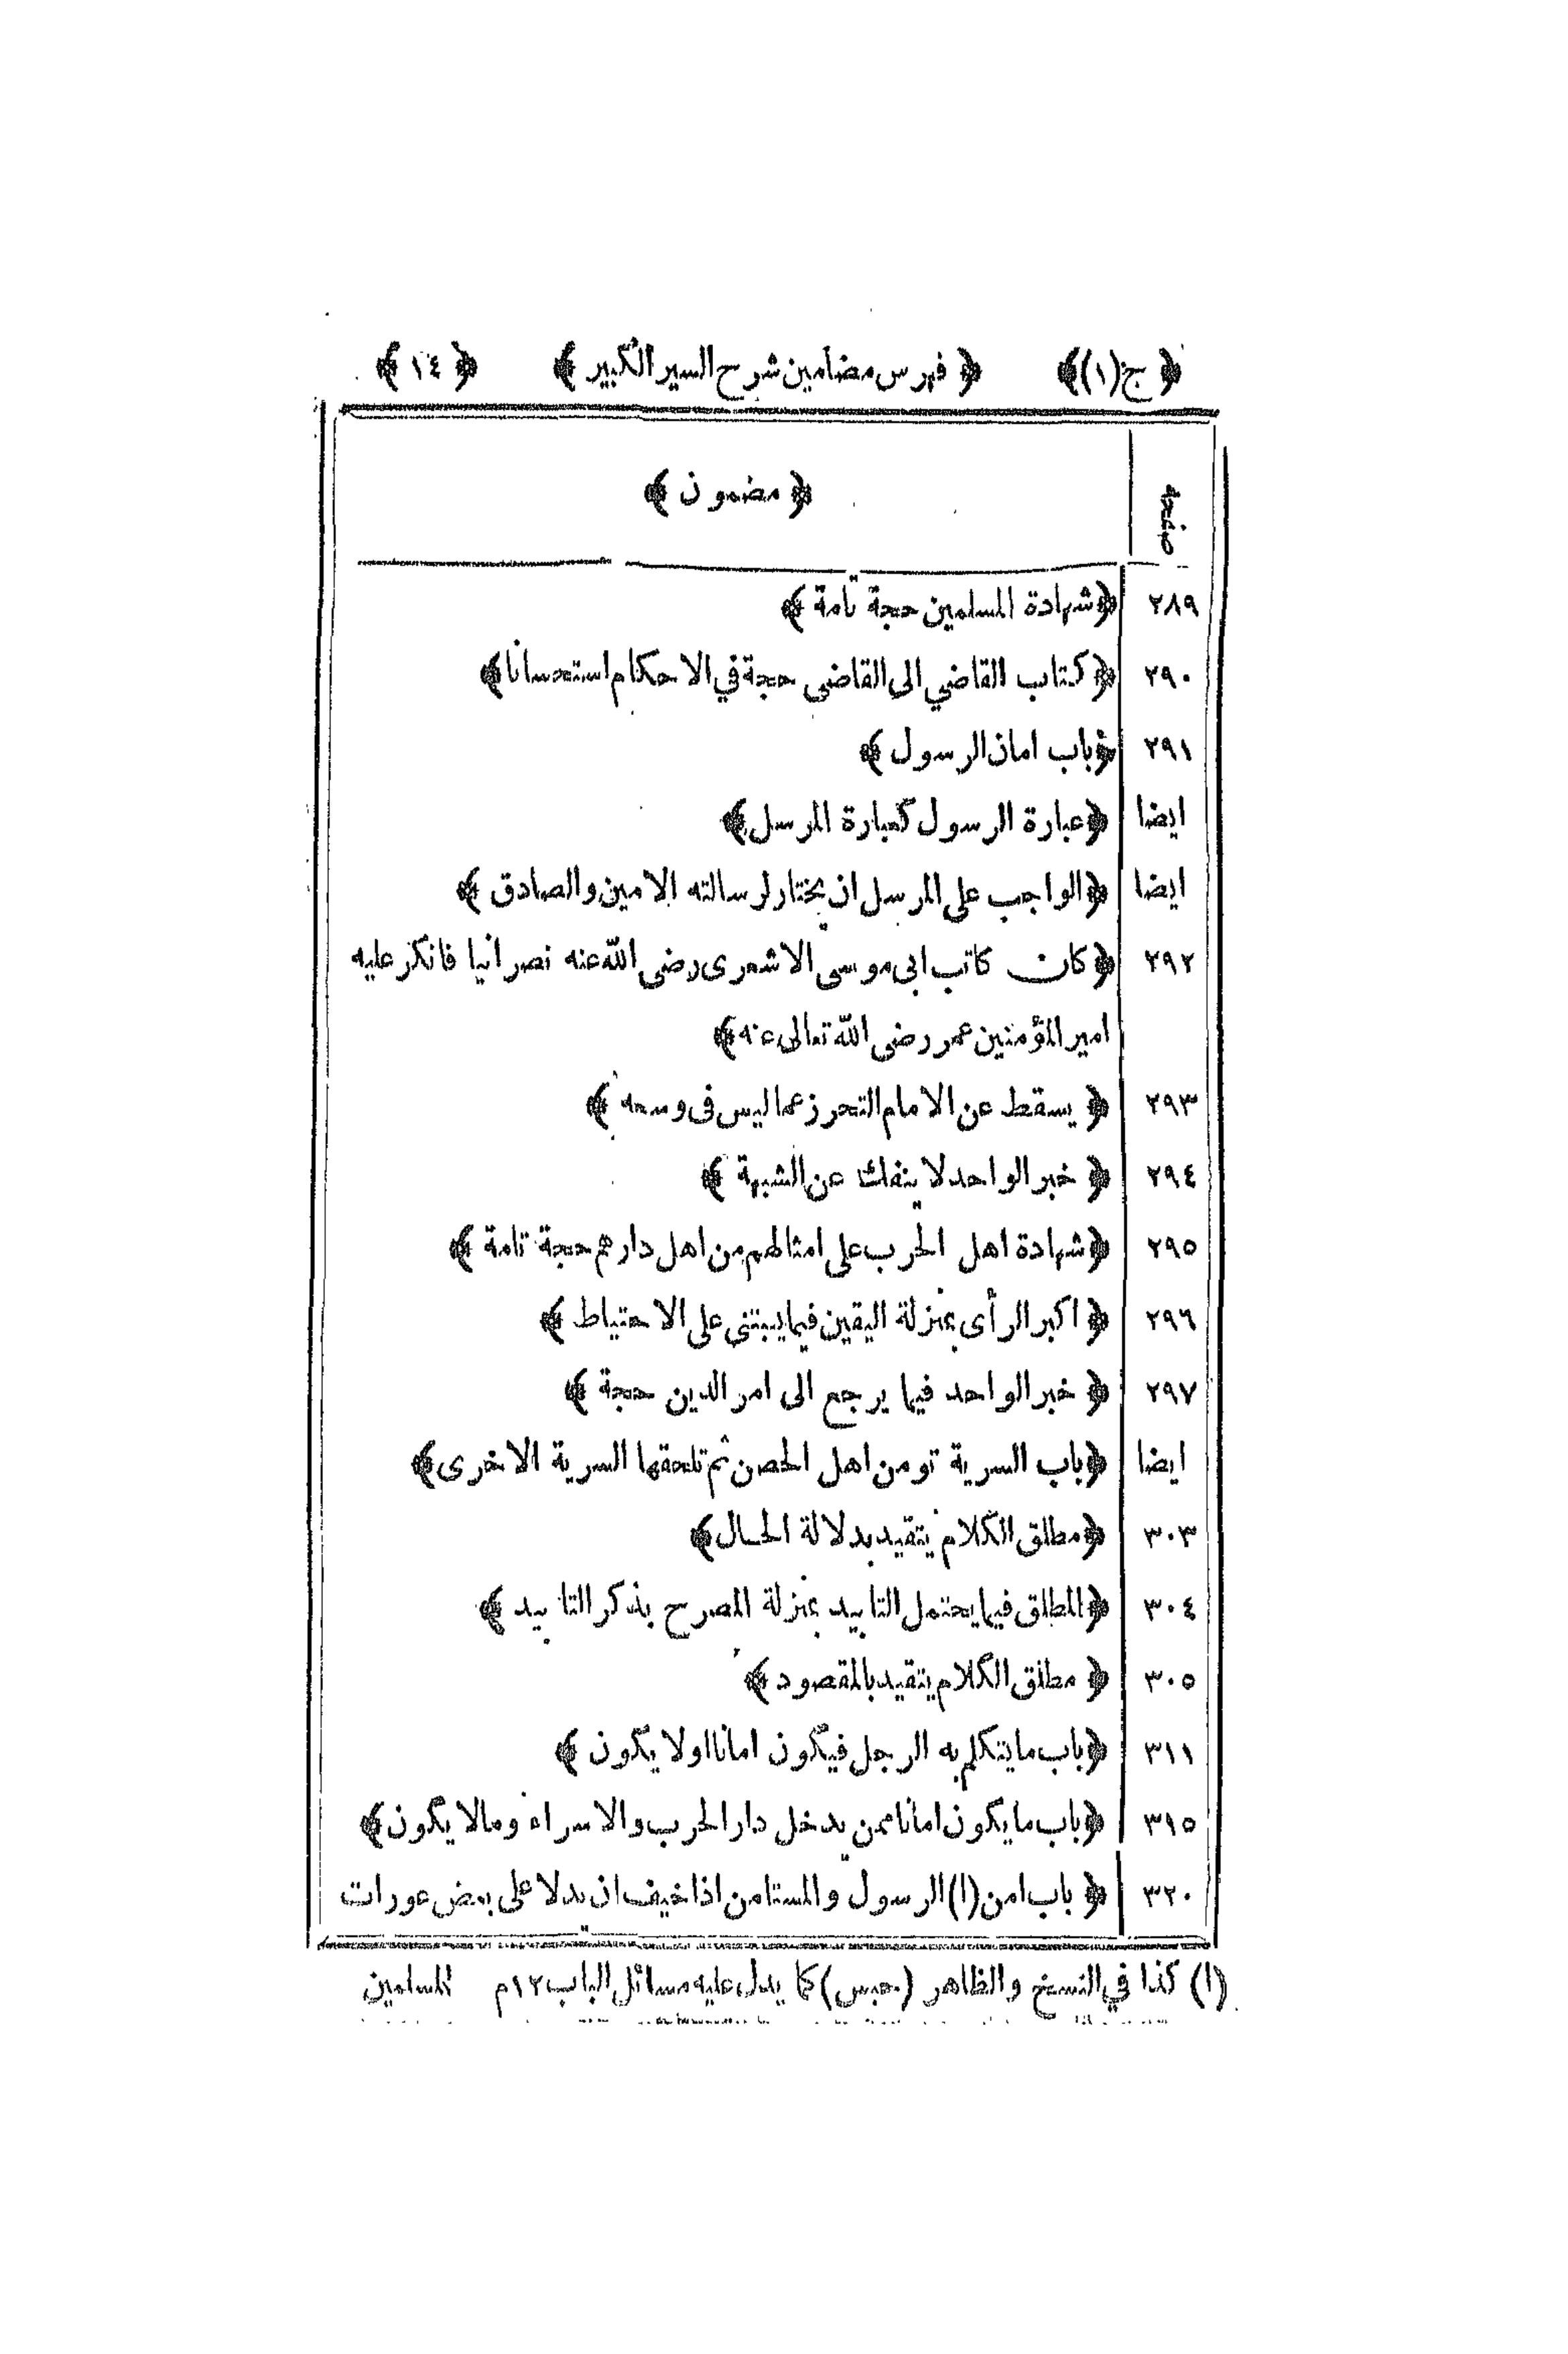 ﴿ ج(١) ﴾ ﴿ فهرس مضامين شرح السير الكبير ﴾ ﴿ ١٤ ﴾
صفحه ﴿ مضمون ﴾
٢٨٩ ﴿ شهادة المسلمين حجة تامة ﴾
٢٩٠ ﴿ كتاب القاضي الى القاضى حجة في الاحكام استحسانا ﴾
٢٩١ ﴿ باب امان الرسول ﴾
ايضا ﴿ عبارة الرسول كعبارة المرسل ﴾
ايضا ﴿ الواجب على المرسل ان يختار لرسالته الامين والصادق ﴾
٢٩٢ ﴿ كان كاتب ابى موسى الاشعرى رضى الله عنه نصرانيا فانكر عليه
امير المؤمنين عمر رضى الله تعالى عنه ﴾
٢٩٣ ﴿ يسقط عن الامام التحرز عما ليس فى وسعه ﴾
٢٩٤ ﴿ خبر الواحد لا ينفك عن الشبهة ﴾
٢٩٥ ﴿ شهادة اهل الحرب على امثالهم من اهل دارهم حجة تامة ﴾
٢٩٦ ﴿ اكبر الرأى بمنزلة اليقين فيما يبتنى على الاحتياط ﴾
٢٩٧ ﴿ خبر الواحد فيما يرجع الى امر الدين حجة ﴾
ايضا ﴿ باب السرية تومن اهل الحصن ثم تلحقها السرية الاخرى ﴾
٣٠٣ ﴿ مطلق الكلام يتقيد بدلالة الحال ﴾
٣٠٤ ﴿ المطلق فيما يحتمل التابيد بمنزلة المصرح بذكر التابيد ﴾
٣٠٥ ﴿ مطلق الكلام يتقيد بالمقصود ﴾
٣١١ ﴿ باب ما يتكلم به الرجل فيكون امانا اولا يكون ﴾
٣١٥ ﴿ باب ما يكون امانا ممن يدخل دار الحرب والاسراء وما لا يكون ﴾
٣٢٠ ﴿ باب امن (١) الرسول والمستامن اذا خيف ان يدلا على بعض عورات
(١) كذا في النسخ والظاهر (حبس) كما يدل عليه مسائل الباب ١٢ م المسلمين